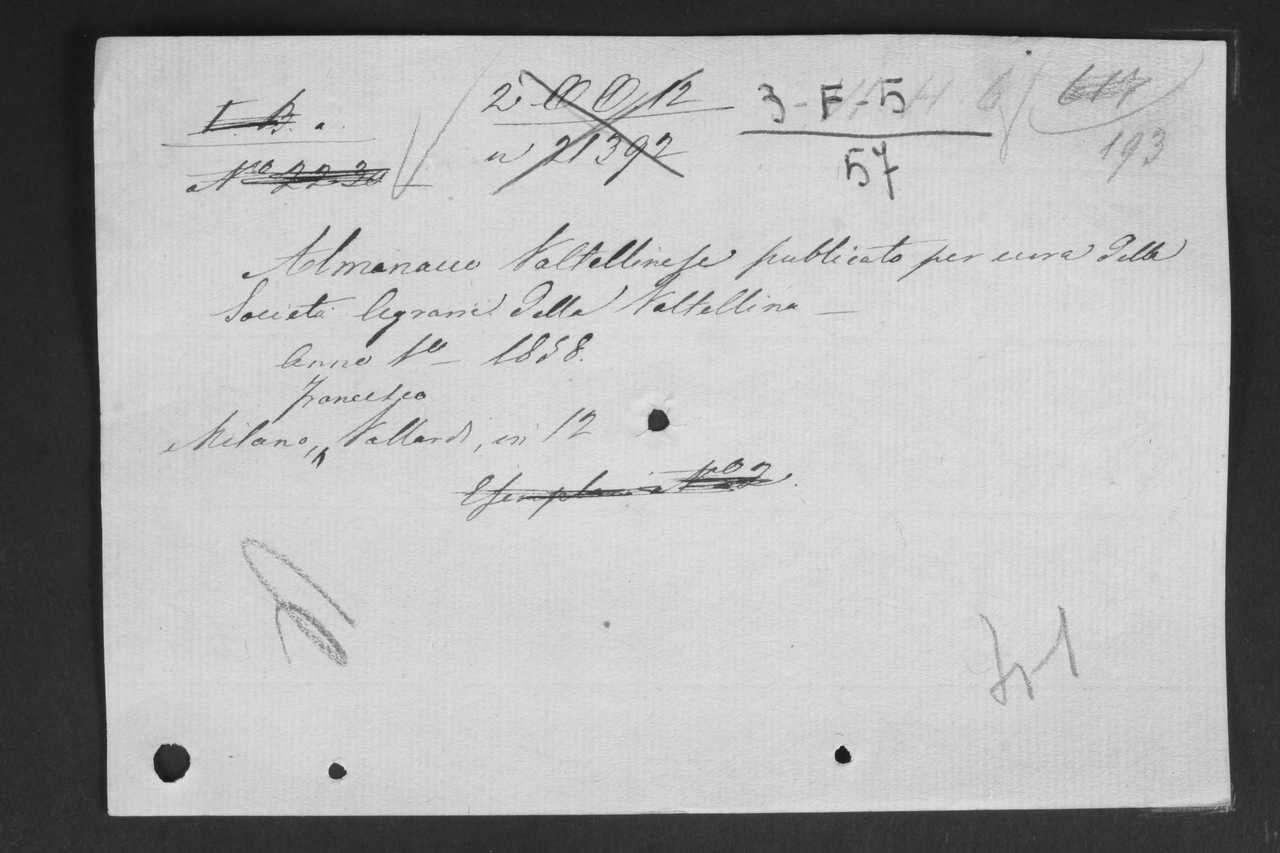 T. B.
2 12
3-F-5
No 223
n 21392
57
193
Almanacco Valtellinese publicato per cura della
Società Agraria della Valtellina —
Anno 1o — 1858.
Francesco
Milano, Vallardi, in 12
Esemplari No 2.